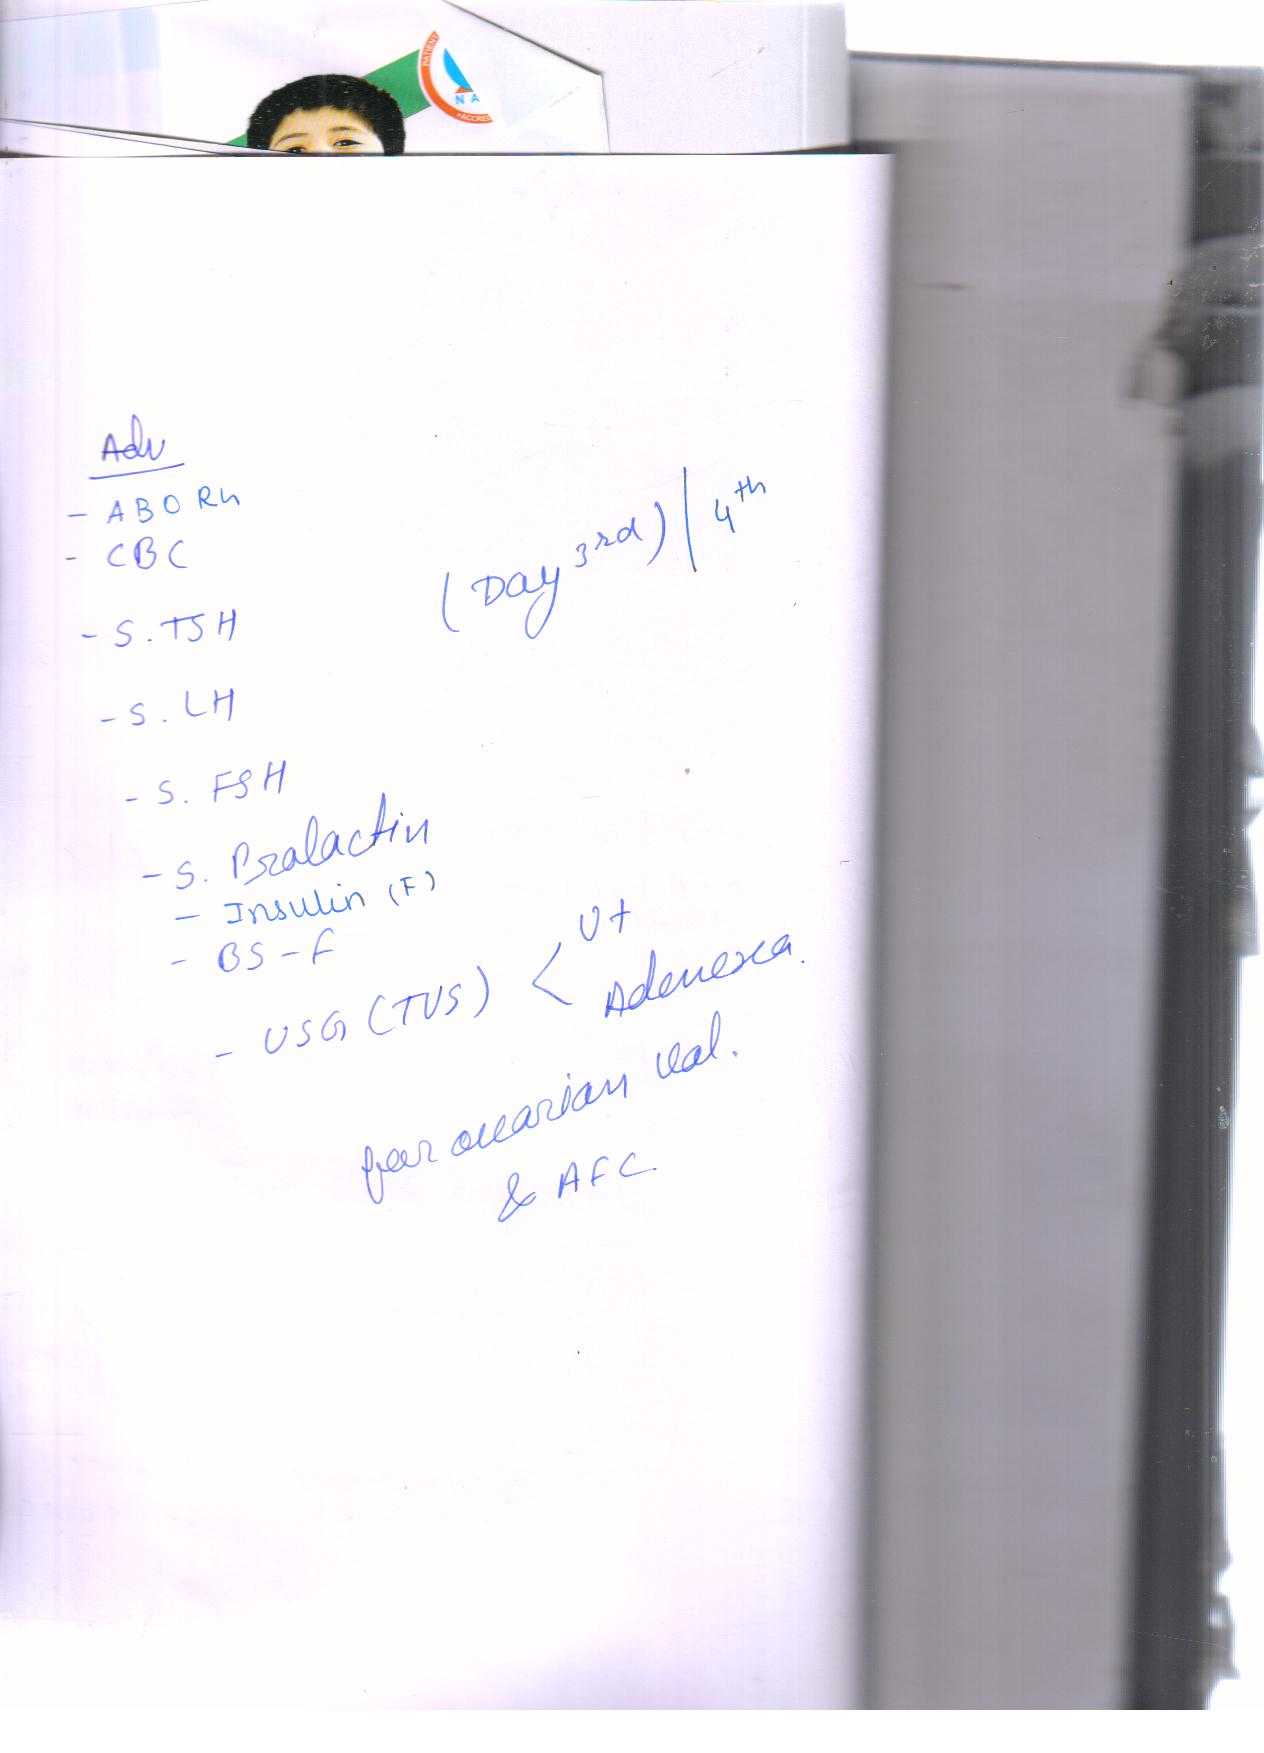 PATIENT
N A
ACCRED
Adv
- ABO Rh
- CBC
(Day 3rd) | 4th
- S. TSH
- S. LH
- S. FSH
- S. Prolactin
- Insulin (F)
- BS - F
- USG (TVS) < Ut
Adenexa.
for ovarian Vol.
& AFC.